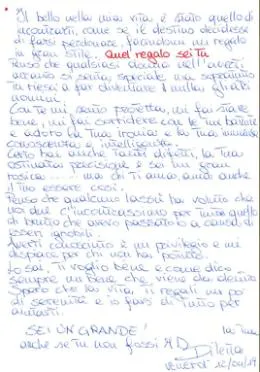 Il bello nella mia vita è stato quello di
incontrarti, come se il destino decidesse
di farsi perdonare, facendomi un regalo
in gran stile. Quel regalo sei tu
Penso che qualsiasi donna nell'averti
accanto si senta speciale ma soprattutto
in
nomini.
Con te mi sento protetta, mi fai stare
bene, mi fai sorridere con le tue battute
e adoro la tua ironia e la tua immensa
conoscenza e intelligenza.
Certo hai anche tanti difetti, la tua
ostinata precisione e sei un gran
rosica... ma chi ti ama, ama anche
il tuo essere così.
Penso che qualcuno lassù ha voluto che
noi due c'incontrassimo per tutto quello
di brutto che avevo passato a causa di
esseri ignobili.
Averti conosciuto è un privilegio e mi
dispiace per chi non ha potuto.
Lo sai, ti voglio bene e come dico
sempre un bene che viene da dentro
Spero che la vita, ti regali un po'
di serenità e io farò di tutto per
aiutarti.
SEI UN GRANDE! la tua
anche se tu non fossi
venerdì 12/04/19